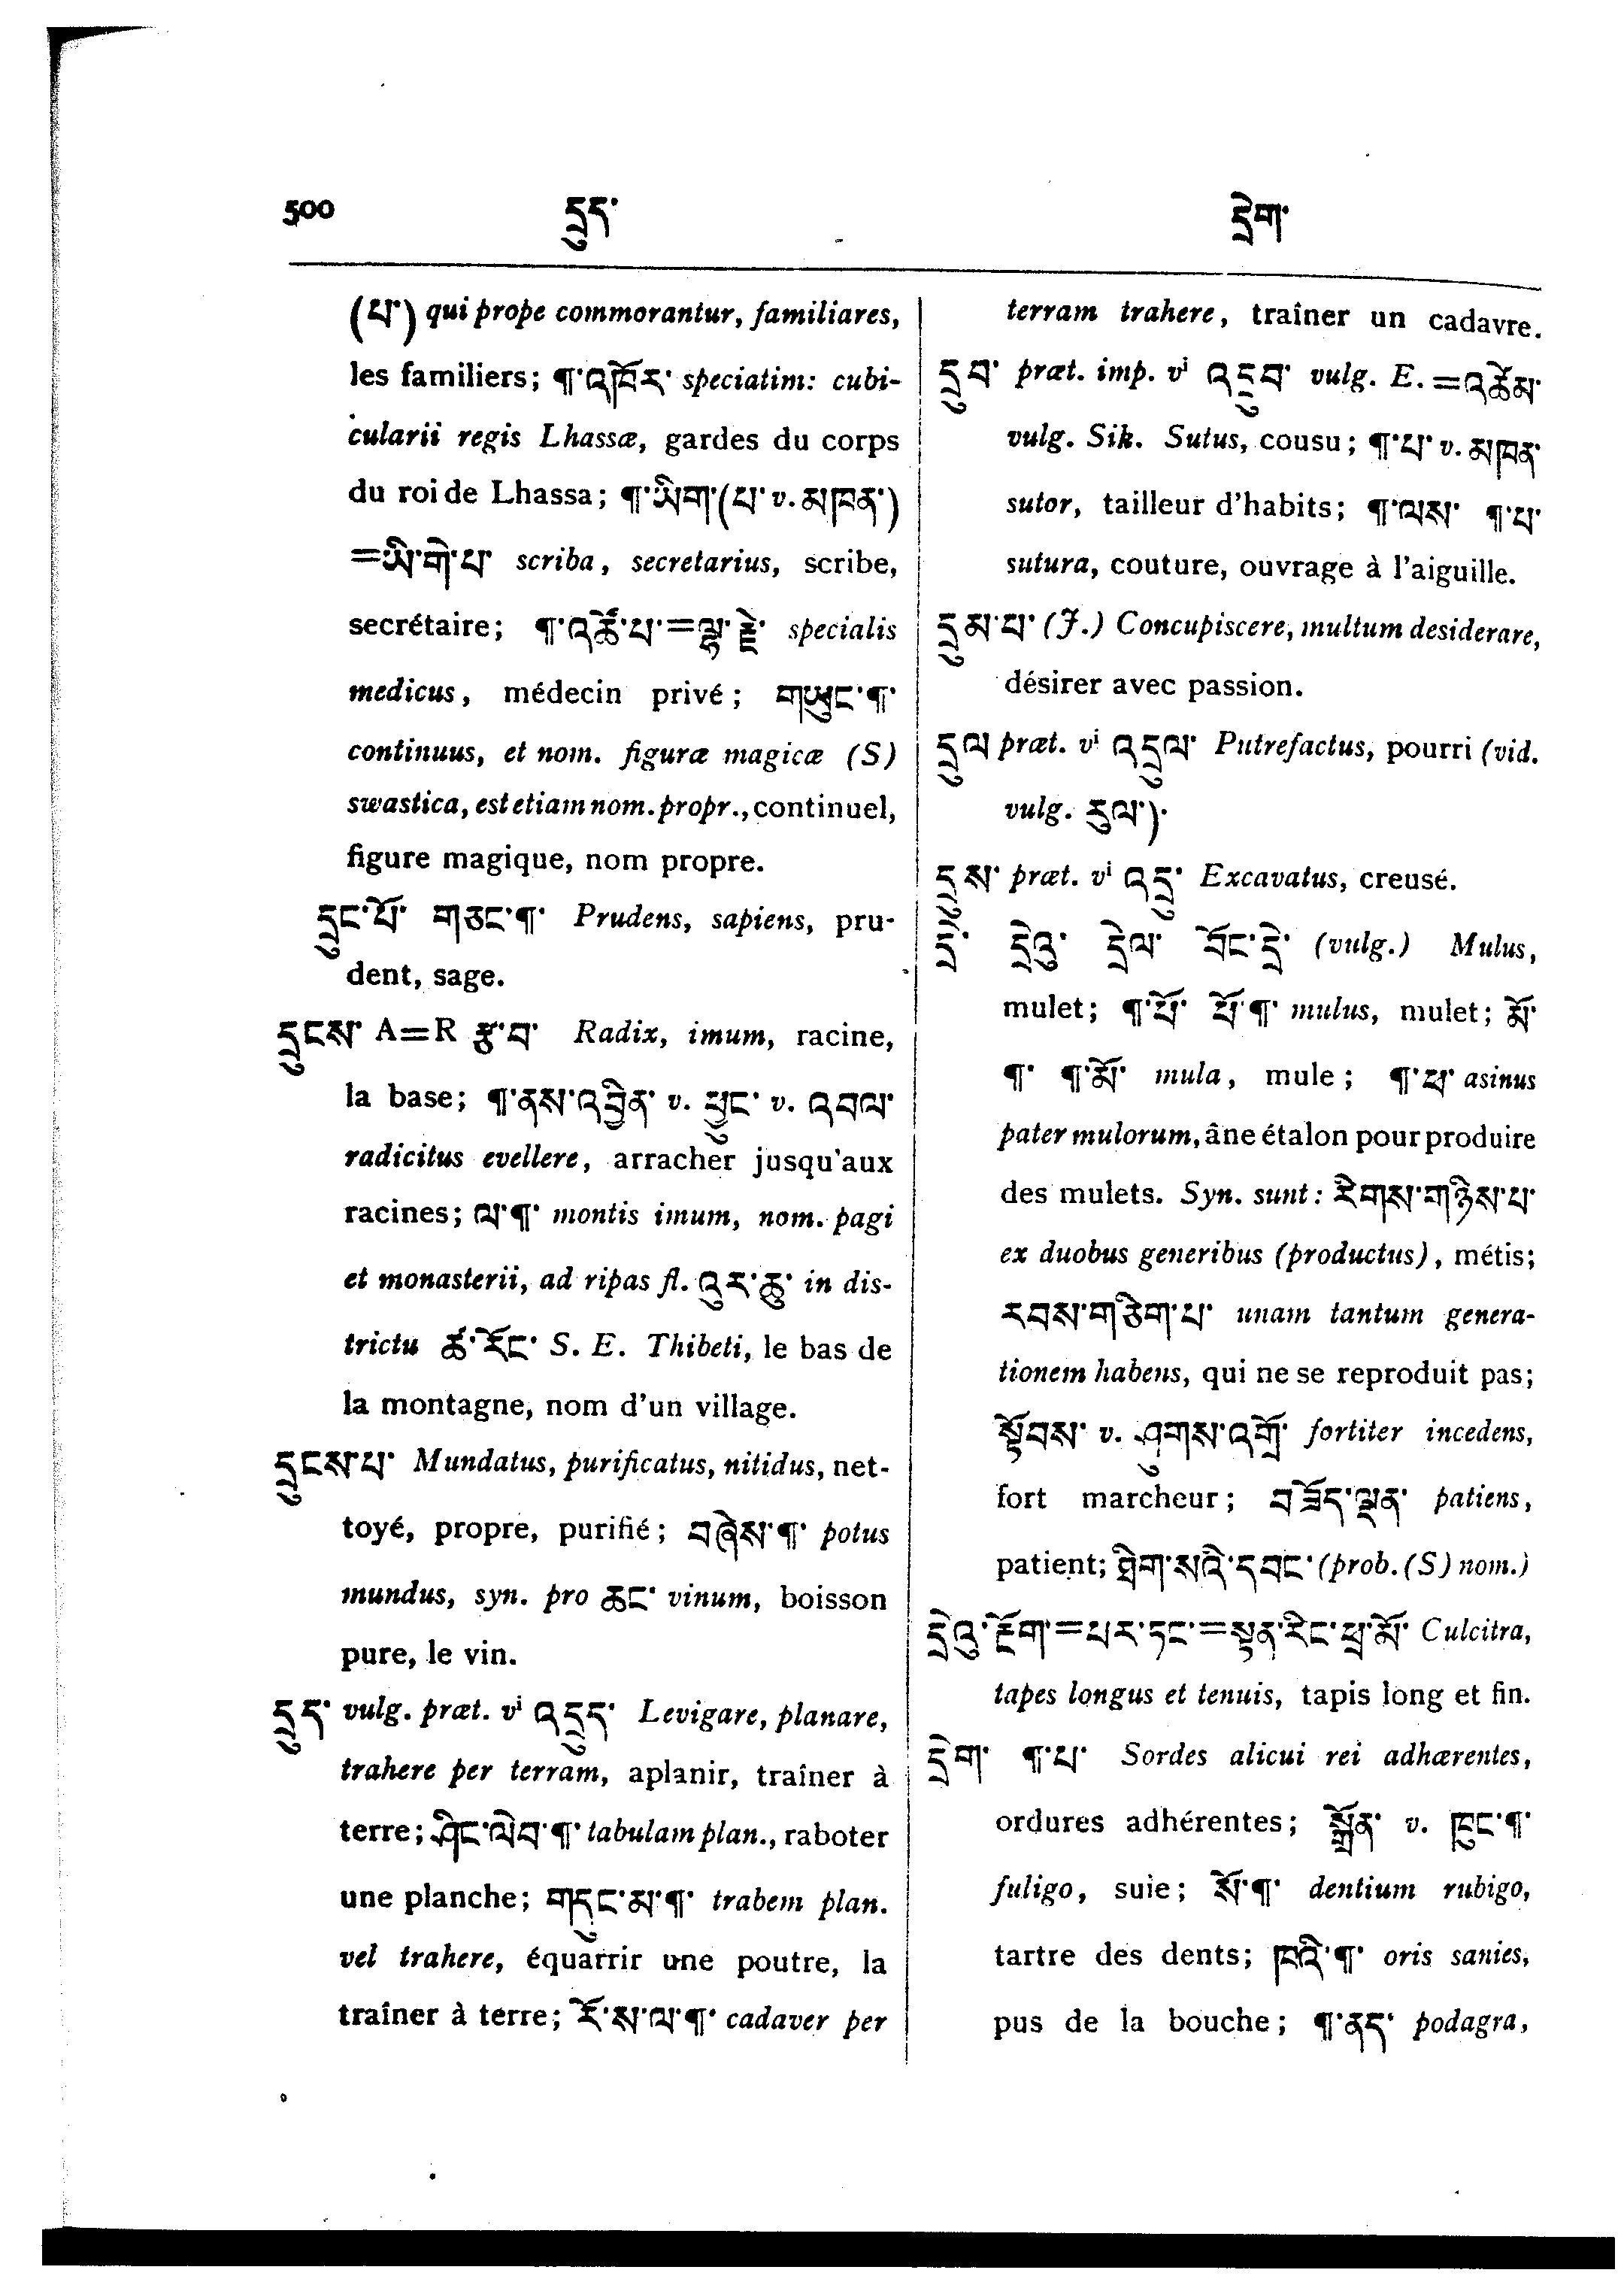 500 དྲུད་ དྲེག་
(པ་) qui prope commorantur, familiares,
les familiers; ¶་འཁོར་ speciatim: cubi-
cularii regis Lhassæ, gardes du corps
du roi de Lhassa; ¶་ཡིག་(པ་ v. མཁན་)
=ཡི་གེ་པ་ scriba, secretarius, scribe,
secrétaire; ¶་འཚོ་པ་=ལྷ་རྗེ་ specialis
medicus, médecin privé; གཡུང་¶་
continuus, et nom. figuræ magicæ (S)
swastica, est etiam nom. propr., continuel,
figure magique, nom propre.
དྲུང་པོ་ གཅང་¶་ Prudens, sapiens, pru-
dent, sage.
དྲུངས་ A=R རྩ་བ་ Radix, imum, racine,
la base; ¶་ནས་འབྱིན་ v. ཕྱུང་ v. འབལ་
radicitus evellere, arracher jusqu'aux
racines; ལ་¶་ montis imum, nom. pagi
et monasterii, ad ripas fl. འུར་ཆུ་ in dis-
trictu ཚ་རོང་ S. E. Thibeti, le bas de
la montagne, nom d'un village.
དྲུངས་པ་ Mundatus, purificatus, nitidus, net-
toyé, propre, purifié; བཞེས་¶་ potus
mundus, syn. pro ཆང་ vinum, boisson
pure, le vin.
དྲུད་ vulg. præt. vⁱ འདྲུད་ Levigare, planare,
trahere per terram, aplanir, traîner à
terre; ཤིང་ལེབ་¶་ tabulam plan., raboter
une planche; གདུང་མ་¶་ trabem plan.
vel trahere, équarrir une poutre, la
traîner à terre; རོ་ས་ལ་¶་ cadaver per
terram trahere, traîner un cadavre.
དྲུབ་ præt. imp. vⁱ འདྲུབ་ vulg. E. =འཚེམ་
vulg. Sik. Sutus, cousu; ¶་པ་ v. མཁན་
sutor, tailleur d'habits; ¶་ལས་ ¶་པ་
sutura, couture, ouvrage à l'aiguille.
དྲུམ་པ་ (J.) Concupiscere, multum desiderare,
désirer avec passion.
དྲུལ præt. vⁱ འདྲུལ་ Putrefactus, pourri (vid.
vulg. རུལ་).
དྲུས་ præt. vⁱ འདྲུ་ Excavatus, creusé.
དྲེ་ དྲེའུ་ དྲེལ་ བོང་དྲེ་ (vulg.) Mulus,
mulet; ¶་ཕོ་ ཕོ་¶་ mulus, mulet; མོ་
¶་ ¶་མོ་ mula, mule; ¶་ཕ་ asinus
pater mulorum, âne étalon pour produire
des mulets. Syn. sunt: རིགས་གཉིས་པ་
ex duobus generibus (productus), métis;
རབས་གཅིག་པ་ unam tantum genera-
tionem habens, qui ne se reproduit pas;
སྟོབས་ v. ཤུགས་འགྲོ་ fortiter incedens,
fort marcheur; བཟོད་ལྡན་ patiens,
patient; ཐིག་སའི་དབང་ (prob. (S) nom.)
དྲེའུ་རྔོག་=པར་ཏང་=སྟན་རིང་ཕྲ་མོ་ Culcitra,
tapes longus et tenuis, tapis long et fin.
དྲེག་ ¶་པ་ Sordes alicui rei adhærentes,
ordures adhérentes; སྒྲོན་ v. ཁུང་¶་
fuligo, suie; སོ་¶་ dentium rubigo,
tartre des dents; ཁའི་¶་ oris sanies,
pus de la bouche; ¶་ནད་ podagra,